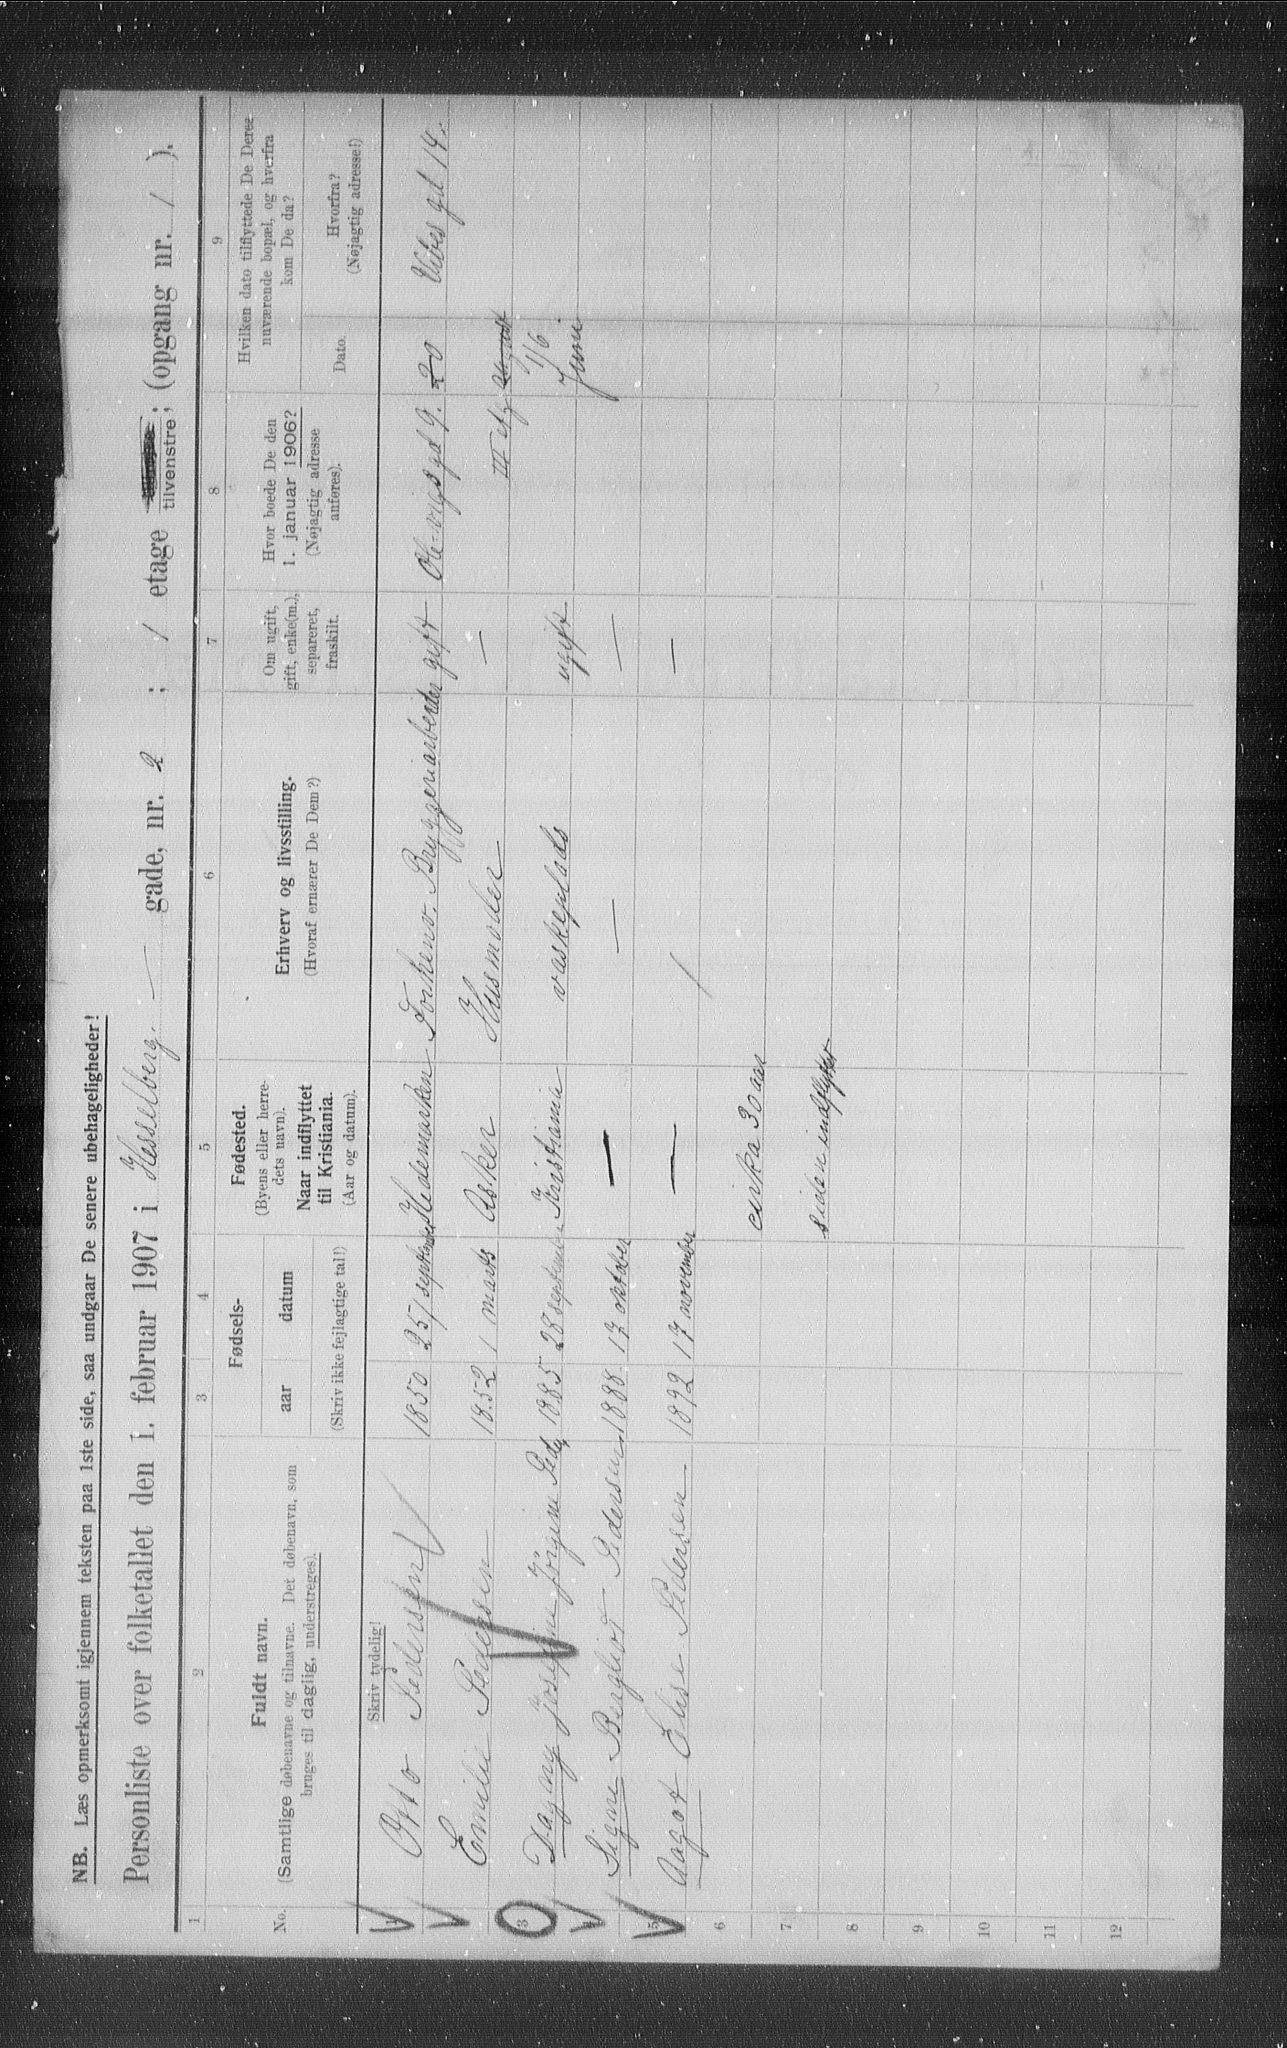 NB. Læs opmerksomt igjennem teksten paa 1ste side, saa undgaar De senere ubehageligheder!
Personliste over folketallet den 1. februar 1907 i Hesselberg gade, nr. 2 ; 1 etage tilvenstre; (opgang nr. 1 ).
1 2 3 4 5 6 7 8 9
No.
Fuldt navn.
(Samtlige døbenavne og tilnavne. Det døbenavn, som
bruges til daglig, understreges).
Fødsels-
aar datum
(Skriv ikke fejlagtige tal!)
Fødested.
(Byens eller herre-
dets navn).
Naar indflyttet
til Kristiania.
(Aar og datum).
Erhverv og livsstilling.
(Hvoraf ernærer De Dem?)
Om ugift,
gift, enke(m.),
separeret,
fraskilt.
Hvor boede De den
1. januar 1906?
(Nøjagtig adresse
anføres).
Hvilken dato tilflyttede De Deres
nuværende bopæl, og hvorfra
kom De da?
Dato.
Hvorfra?
(Nøjagtig adresse!)
Skriv tydelig!
1 Otto Pedersen 1850 25/ september Hedemarken Forhenv. Bryggeriarbeider gift Ole-vigs gd 9. 20 Vibes gd 14.
Emilie Pedersen 1852 1 marts Asker Husmoder — III etg august
3 Dagny Josefine Jørgine Ped 1885 28 september Kristiania vaskeplads ugift 1/6 Juni
Signe Bergliot Pedersen 1888 17 oktober — — —
5 Aagot Elise Pedersen. 1892 17 november — / —
6 cirka 30 aar
7 siden indflyttet
8
9
10
11
12